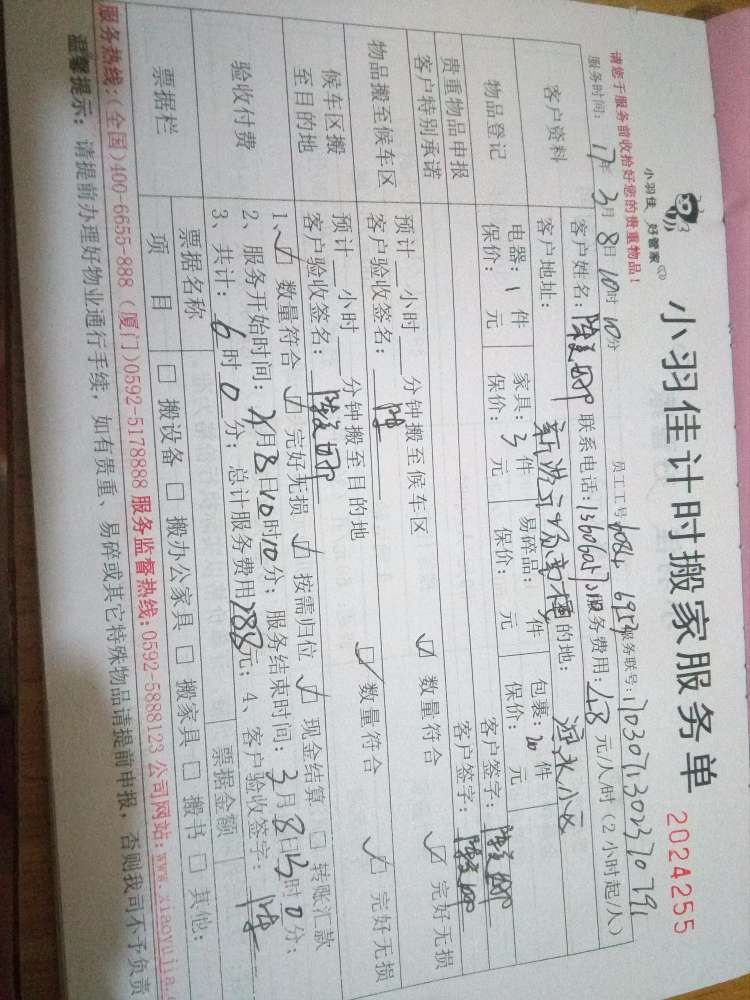 小羽佳 好管家
小羽佳计时搬家服务单 2024255
请您于服务前收拾好您的贵重物品！
服务时间：17年3月8日10时10分 员工工号 服务联号：
客户资料 客户姓名： 联系电话： 服务费用：48元/人/时（2小时起/人）
客户地址： 目的地：
物品登记 电器：1件 家具：3件 易碎品： 件 包裹：20件
保价： 元 保价： 元 保价： 元 保价： 元
贵重物品申报 客户签字：
客户特别承诺 客户签字：
物品搬至候车区 预计 小时 分钟搬至候车区 ☑ 数量符合 ☑ 完好无损
客户验收签名：陈
候车区搬至目的地 预计 小时 分钟搬至目的地 ☑ 数量符合 ☑ 完好无损
客户验收签名：
验收付费 1、☑ 数量符合 ☑ 完好无损 ☑ 按需归位 ☑ 现金结算 □ 转账汇款
2、服务开始时间：3月8日10时10分；服务结束时间：3月8日 时0分；
3、共计：6时0分；总计服务费用288元；4、客户验收签字：陈
票据栏 票据名称 票据金额
项目 □ 搬设备 □ 搬办公家具 □ 搬家具 □ 搬书 □ 其他：
服务热线：（全国）400-6655-888（厦门）0592-5178888 服务监督热线：0592-5888123 公司网站：www.xiaoyujia.c
温馨提示：请提前办理好物业通行手续，如有贵重、易碎或其它特殊物品请提前申报，否则我司不予负责